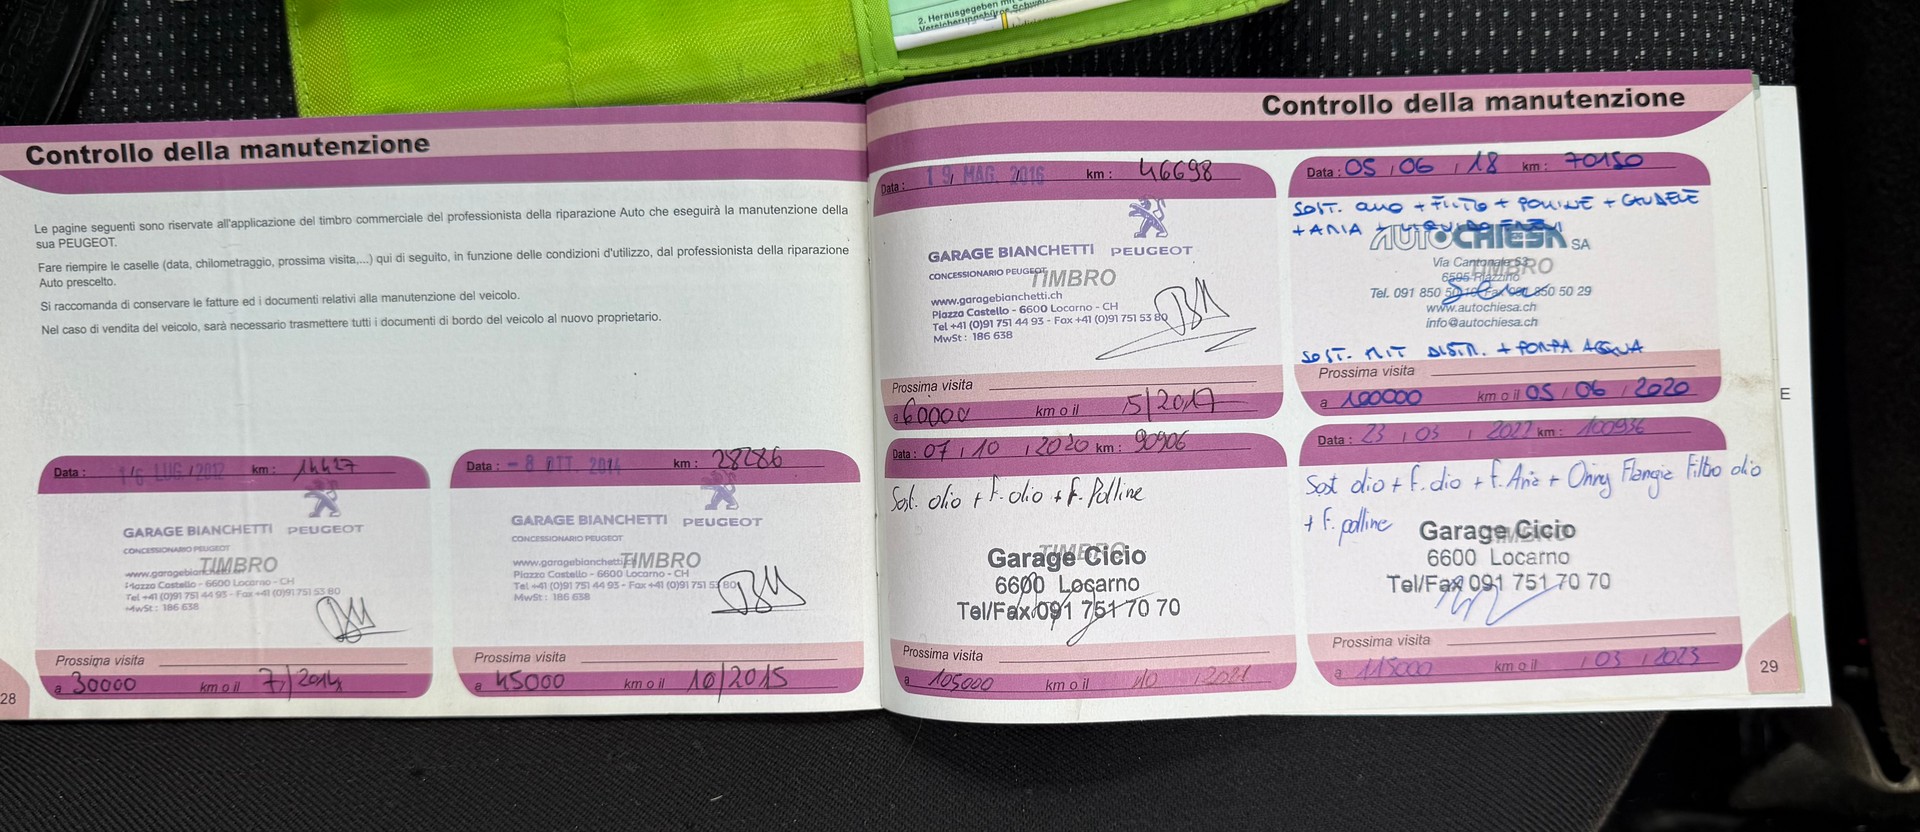 2. Herausgegeben
Controllo della manutenzione
Le pagine seguenti sono riservate all'applicazione del timbro commerciale del professionista della riparazione Auto che eseguirà la manutenzione della
sua PEUGEOT.
Fare riempire le caselle (data, chilometraggio, prossima visita,...) qui di seguito, in funzione delle condizioni d'utilizzo, dal professionista della riparazione
Auto prescelto.
Si raccomanda di conservare le fatture ed i documenti relativi alla manutenzione del veicolo.
Nel caso di vendita del veicolo, sarà necessario trasmettere tutti i documenti di bordo del veicolo al nuovo proprietario.
Data : 16 LUG 2012 km : 14427
GARAGE BIANCHETTI PEUGEOT
CONCESSIONARIO PEUGEOT
TIMBRO
Piazza Castello - 6600 Locarno - CH
Tel +41 (0)91 751 44 93 - Fax +41 (0)91 751 53 80
MwSt : 186 638
Prossima visita
a 30000 km o il 7/2014
Data : - 8 OTT. 2014 km : 28286
GARAGE BIANCHETTI PEUGEOT
CONCESSIONARIO PEUGEOT
TIMBRO
Piazza Castello - 6600 Locarno - CH
Tel +41 (0)91 751 44 93 - Fax +41 (0)91 751 53 80
MwSt : 186 638
Prossima visita
a 45000 km o il 10/2015
28
Controllo della manutenzione
Data : 19 MAG. 2016 km : 46698
GARAGE BIANCHETTI PEUGEOT
CONCESSIONARIO PEUGEOT
TIMBRO
www.garagebianchetti.ch
Piazza Castello - 6600 Locarno - CH
Tel +41 (0)91 751 44 93 - Fax +41 (0)91 751 53 80
MwSt : 186 638
Prossima visita
a 60000 km o il 5/2017
Data : 05 / 06 / 18 km : 70150
SOST. OLIO + FILTRO + POLLINE + CANDELE
+ ARIA +
AUTOCHIESA SA
Via Cantonale 53
TIMBRO
6595 Riazzino
Tel. 091 850 50 29
www.autochiesa.ch
info@autochiesa.ch
SOST. KIT DISTR. + POMPA ACQUA
Prossima visita
a 100000 km o il 05 / 06 / 2020
Data : 07 / 10 / 2020 km : 90906
Sost. olio + f. olio + f. Polline
TIMBRO
Garage Cicio
6600 Locarno
Tel/Fax 091 751 70 70
Prossima visita
a 105000 km o il 10 / 2021
Data : 23 / 03 / 2022 km : 100936
Sost olio + f. olio + f. Aria + Oring Flangia Filtro olio
+ f. polline
Garage Cicio
6600 Locarno
Tel/Fax 091 751 70 70
Prossima visita
a 115000 km o il / 03 / 2023
29
E